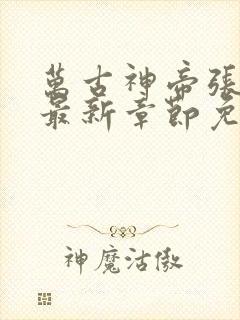 萬古神帝張
最新章節免
神魔沽傲